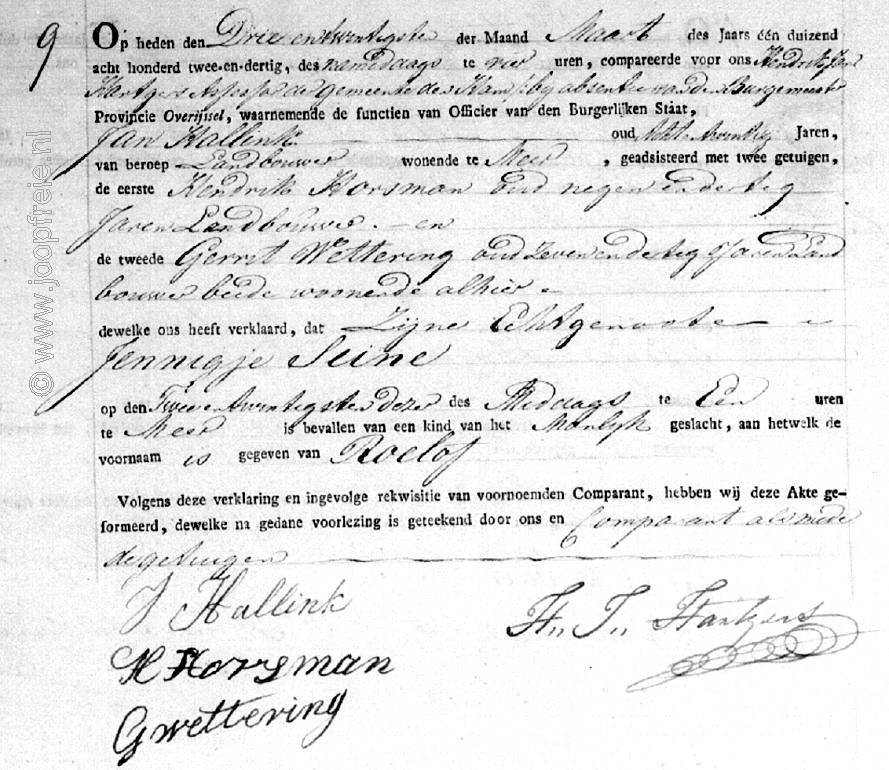 9
Op heden den Drie en twentigste der Maand Maart des Jaars één duizend
acht honderd twee-en-dertig, des namiddags te vier uren, compareerde voor ons Hendrik Jan
Hantgers Assessor der gemeente den Ham, by absentie van den Burgemeester
Provincie Overijssel, waarnemende de functien van Officier van den Burgerlijken Staat,
Jan Hallink oud Acht twentig Jaren,
van beroep Landbouwer wonende te Meer, geadsisteerd met twee getuigen,
de eerste Hendrik Horsman oud negen en dertig
Jaren Landbouwer - en
de tweede Gerrit Wettering oud Zeven en dertig Jaren Land
bouwer beide woonende alhier -
dewelke ons heeft verklaard, dat Zijne Echtgenoote
Jennigje Seine
op den Twee en twentigsten dezer des Middags te Een uren
te Meer is bevallen van een kind van het Manlyk geslacht, aan hetwelk de
voornaam is gegeven van Roelof
Volgens deze verklaring en ingevolge rekwisitie van voornoemden Comparant, hebben wij deze Akte ge-
formeerd, dewelke na gedane voorlezing is geteekend door ons en Comparant als mede
de getuigen
J Hallink
Hn Jn Hantgers
H Horsman
G wettering
© www.joopfreije.nl